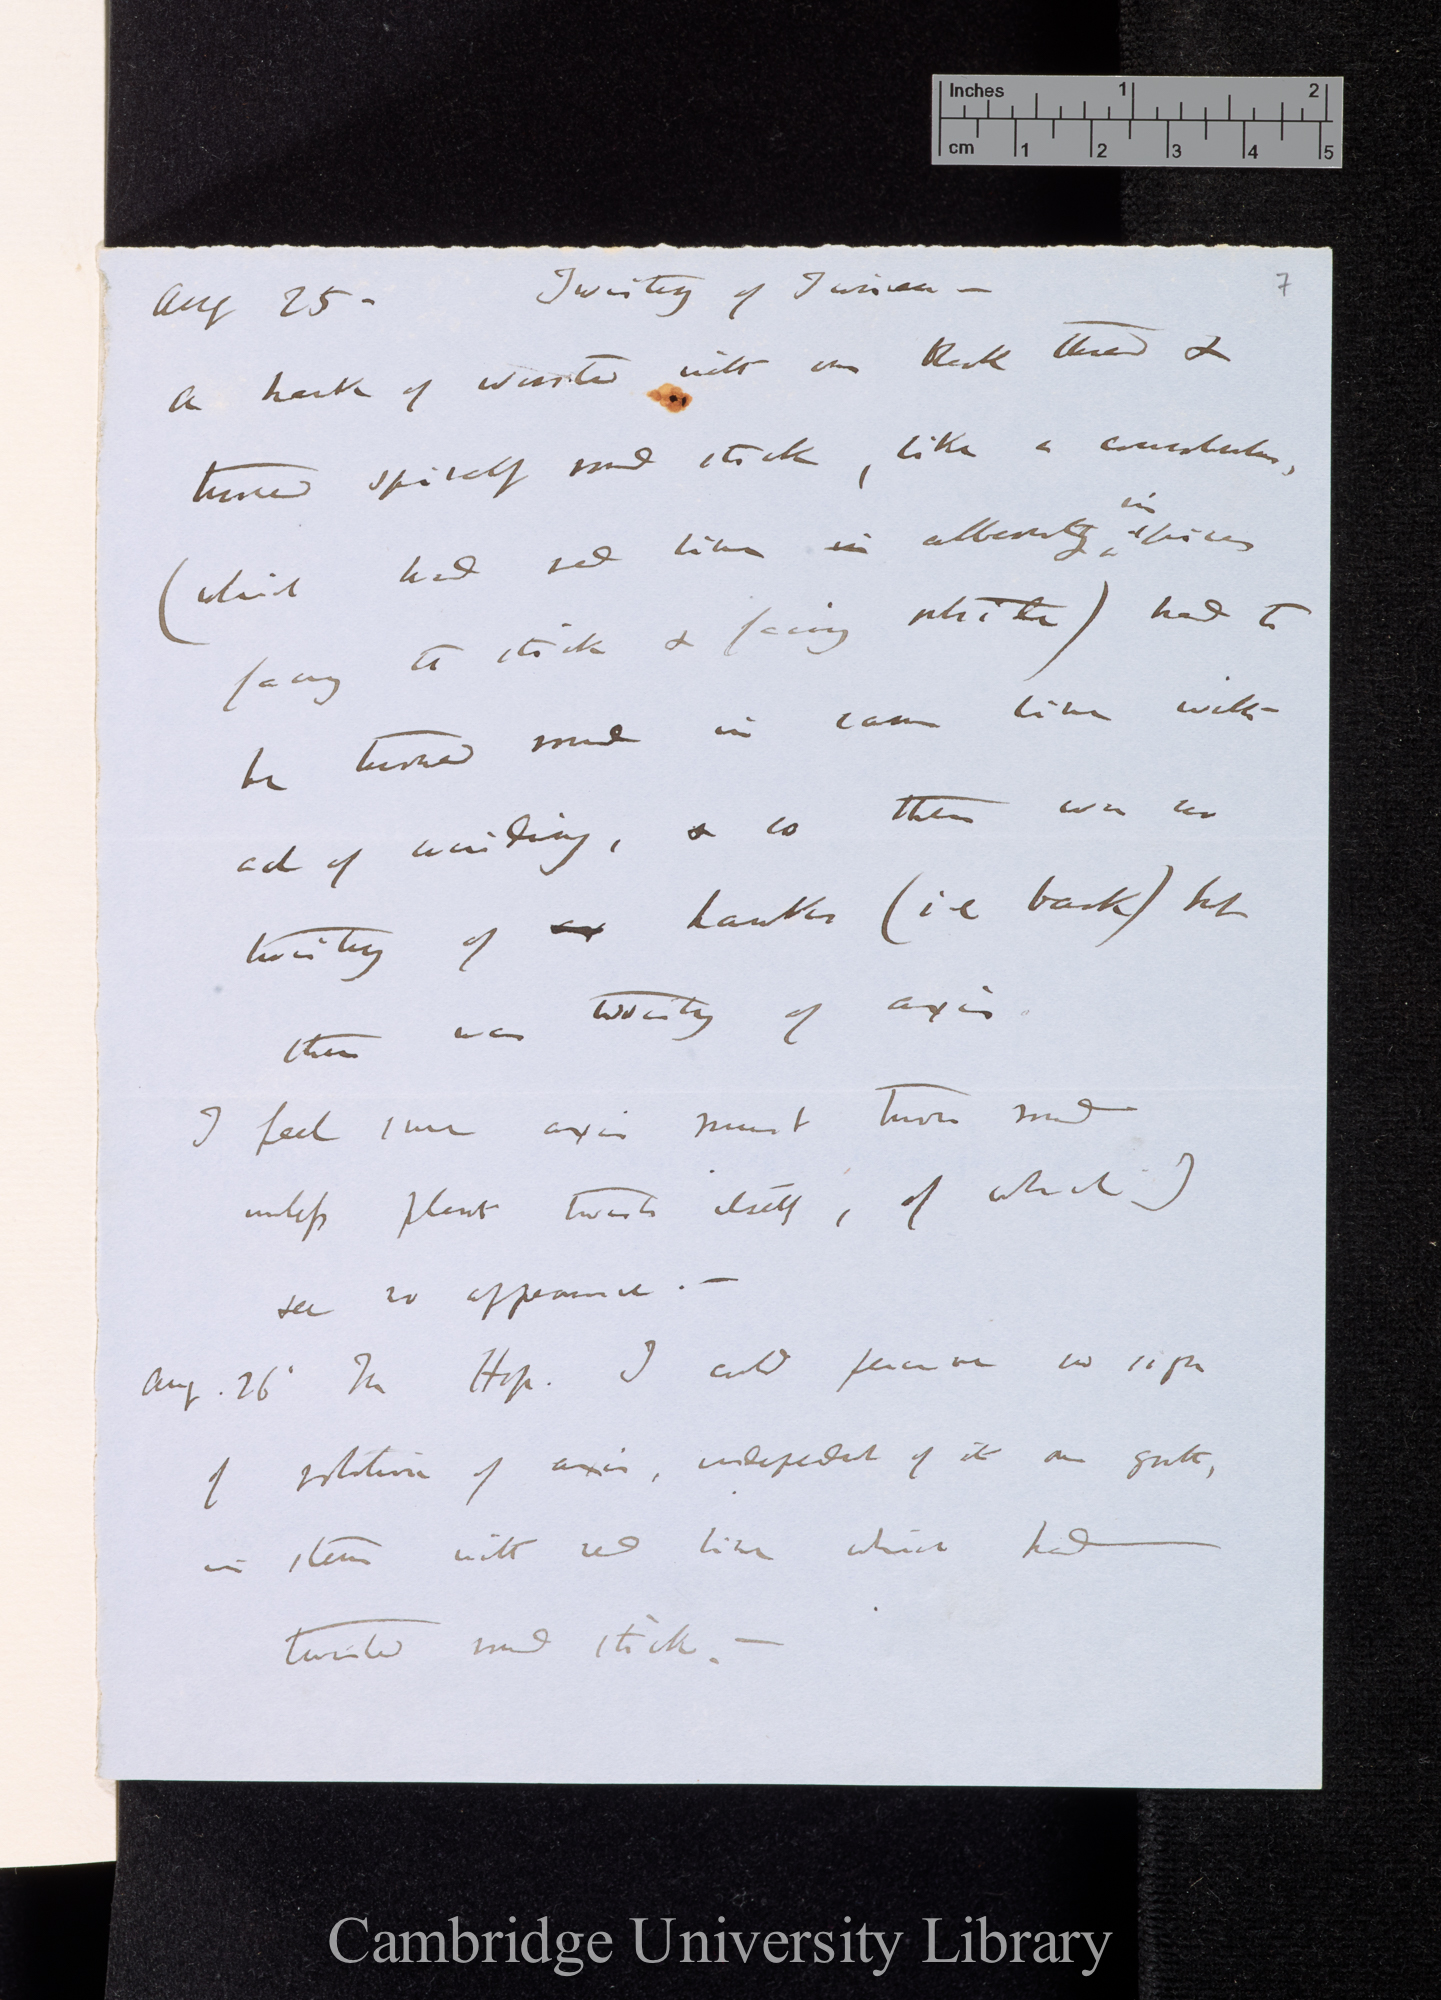 Inches 1 2
cm 1 2 3 4 5
7
Aug 25 - Twisting of Twiners —
A hank of worsted with one Black thread &
turned spirally round stick, like a convolvulus,
(which had red line in alternately in spires
facing to stick & facing white) had to
be turned round in same line with
act of winding, & so there was no
twisting of hanks (i.e bark) but
there was twisting of axis
I feel sure axis must turn round
unless plant twists itself, of which I
see no appearance. —
Aug. 26 In Hop. I could perceive no sign
of rotation of axis, independent of it own growth,
in stem with red line which had
twisted round stick. —
Cambridge University Library